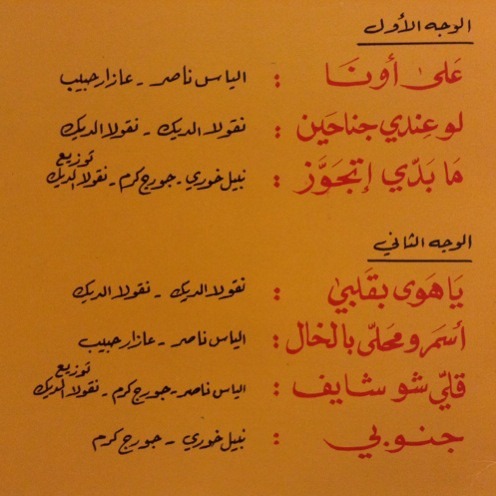 الوجه الأول
عَلىٰ أونَا : الياس ناصر - عازار حبيب
لو عِندي جناحَين : نقولا الديك - نقولا الديك
مَا بَدّي إتجَوَّز : نبيل خوري - جورج كرم - توزيع نقولا الديك
الوجه الثاني
يَا هَوى بقَلبي : نقولا الديك - نقولا الديك
أسمَر ومحَلىّ بالخال : الياس ناصر - عازار حبيب
قليّ شو شايف : الياس ناصر - جورج كرم - توزيع نقولا الديك
جنوبي : نبيل خوري - جورج كرم